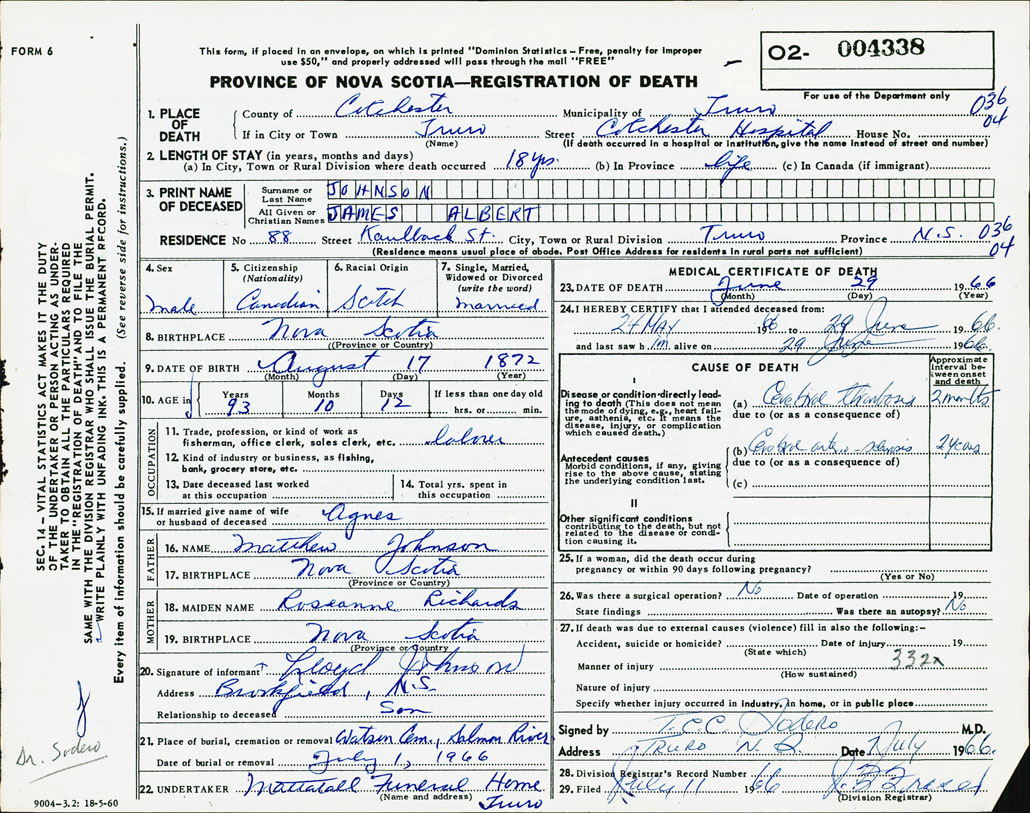 FORM 6
This form, if placed in an envelope, on which is printed "Dominion Statistics – Free, penalty for improper
use $50," and properly addressed will pass through the mail "FREE"
PROVINCE OF NOVA SCOTIA—REGISTRATION OF DEATH
O2- 004338
For use of the Department only
1. PLACE OF DEATH
County of Colchester Municipality of Truro 036
If in City or Town Truro Street Colchester Hospital House No. 04
(Name) (If death occurred in a hospital or institution, give the name instead of street and number)
2. LENGTH OF STAY (in years, months and days)
(a) In City, Town or Rural Division where death occurred 18 yrs. (b) In Province life (c) In Canada (if immigrant)
3. PRINT NAME OF DECEASED
Surname or Last Name JOHNSON
All Given or Christian Names JAMES ALBERT
RESIDENCE No 88 Street Kaulback St. City, Town or Rural Division Truro Province N.S. 036
04
(Residence means usual place of abode. Post Office Address for residents in rural parts not sufficient)
4. Sex
Male
5. Citizenship
(Nationality)
Canadian
6. Racial Origin
Scotch
7. Single, Married, Widowed or Divorced
(write the word)
married
8. BIRTHPLACE Nova Scotia
(Province or Country)
9. DATE OF BIRTH August 17 1872
(Month) (Day) (Year)
10. AGE in
Years Months Days If less than one day old
93 10 12 hrs. or min.
OCCUPATION
11. Trade, profession, or kind of work as
fisherman, office clerk, sales clerk, etc. Laborer
12. Kind of industry or business, as fishing,
bank, grocery store, etc.
13. Date deceased last worked
at this occupation
14. Total yrs. spent in
this occupation
15. If married give name of wife
or husband of deceased Agnes
FATHER
16. NAME Matthew Johnson
17. BIRTHPLACE Nova Scotia
(Province or Country)
MOTHER
18. MAIDEN NAME Roseanne Richards
19. BIRTHPLACE Nova Scotia
(Province or Country)
20. Signature of informant Lloyd Johnson
Address Brookfield, N.S.
Relationship to deceased Son
21. Place of burial, cremation or removal Watson Cem., Salmon River
Date of burial or removal July 1, 1966
22. UNDERTAKER Mattatall Funeral Home
(Name and address) Truro
MEDICAL CERTIFICATE OF DEATH
23. DATE OF DEATH June 29 1966
(Month) (Day) (Year)
24. I HEREBY CERTIFY that I attended deceased from:
27 MAY 1966 to 29 June 1966
and last saw him alive on 29 June 1966
CAUSE OF DEATH
Approximate interval between onset and death
I
Disease or condition directly leading to death (This does not mean the mode of dying, e.g., heart failure, asthenia, etc. It means the disease, injury, or complication which caused death.)
(a) Cerebral thrombosis 2 months
due to (or as a consequence of)
Antecedent causes
Morbid conditions, if any, giving rise to the above cause, stating the underlying condition last.
(b) Cerebral arterio-sclerosis 2 years
due to (or as a consequence of)
(c)
II
Other significant conditions
contributing to the death, but not related to the disease or condition causing it.
25. If a woman, did the death occur during
pregnancy or within 90 days following pregnancy?
(Yes or No)
26. Was there a surgical operation? No Date of operation 19
State findings Was there an autopsy? No
27. If death was due to external causes (violence) fill in also the following:-
Accident, suicide or homicide? Date of injury 19
(State which)
Manner of injury 332x
(How sustained)
Nature of injury
Specify whether injury occurred in industry, in home, or in public place
Signed by T.C.C. Sodero M.D.
Address TRURO N.S. Date July 1966
28. Division Registrar's Record Number
29. Filed July 11 1966
(Division Registrar)
SEC. 14 – VITAL STATISTICS ACT MAKES IT THE DUTY
OF THE UNDERTAKER OR PERSON ACTING AS UNDER-
TAKER TO OBTAIN ALL THE PARTICULARS REQUIRED
IN THE "REGISTRATION OF DEATH" AND TO FILE THE
SAME WITH THE DIVISION REGISTRAR WHO SHALL ISSUE THE BURIAL PERMIT.
WRITE PLAINLY WITH UNFADING INK. THIS IS A PERMANENT RECORD.
Every item of information should be carefully supplied. (See reverse side for instructions.)
Dr. Sodero
9004-3.2: 18-5-60